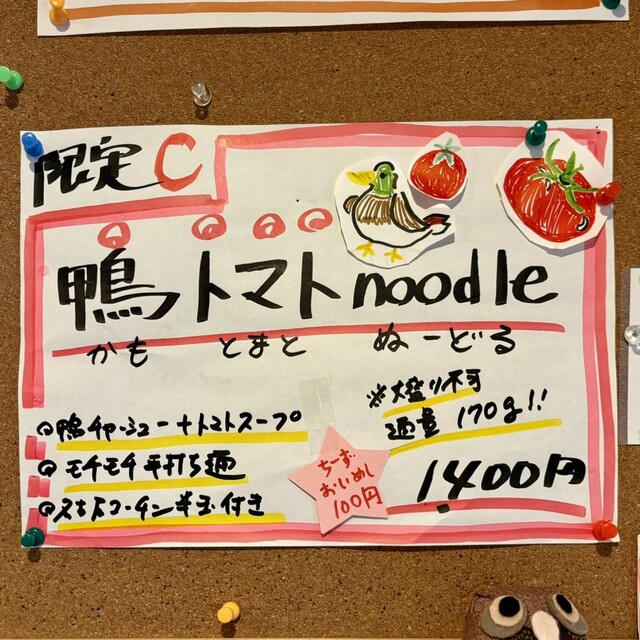 限定C
鴨トマトnoodle
かも とまと ぬーどる
◎鴨チャーシュー+トマトスープ
◎モチモチ平打ち麺
◎名古屋コーチン半玉付き
※大盛り不可
通量170g!!
1400円
ちーず
おいめし
100円